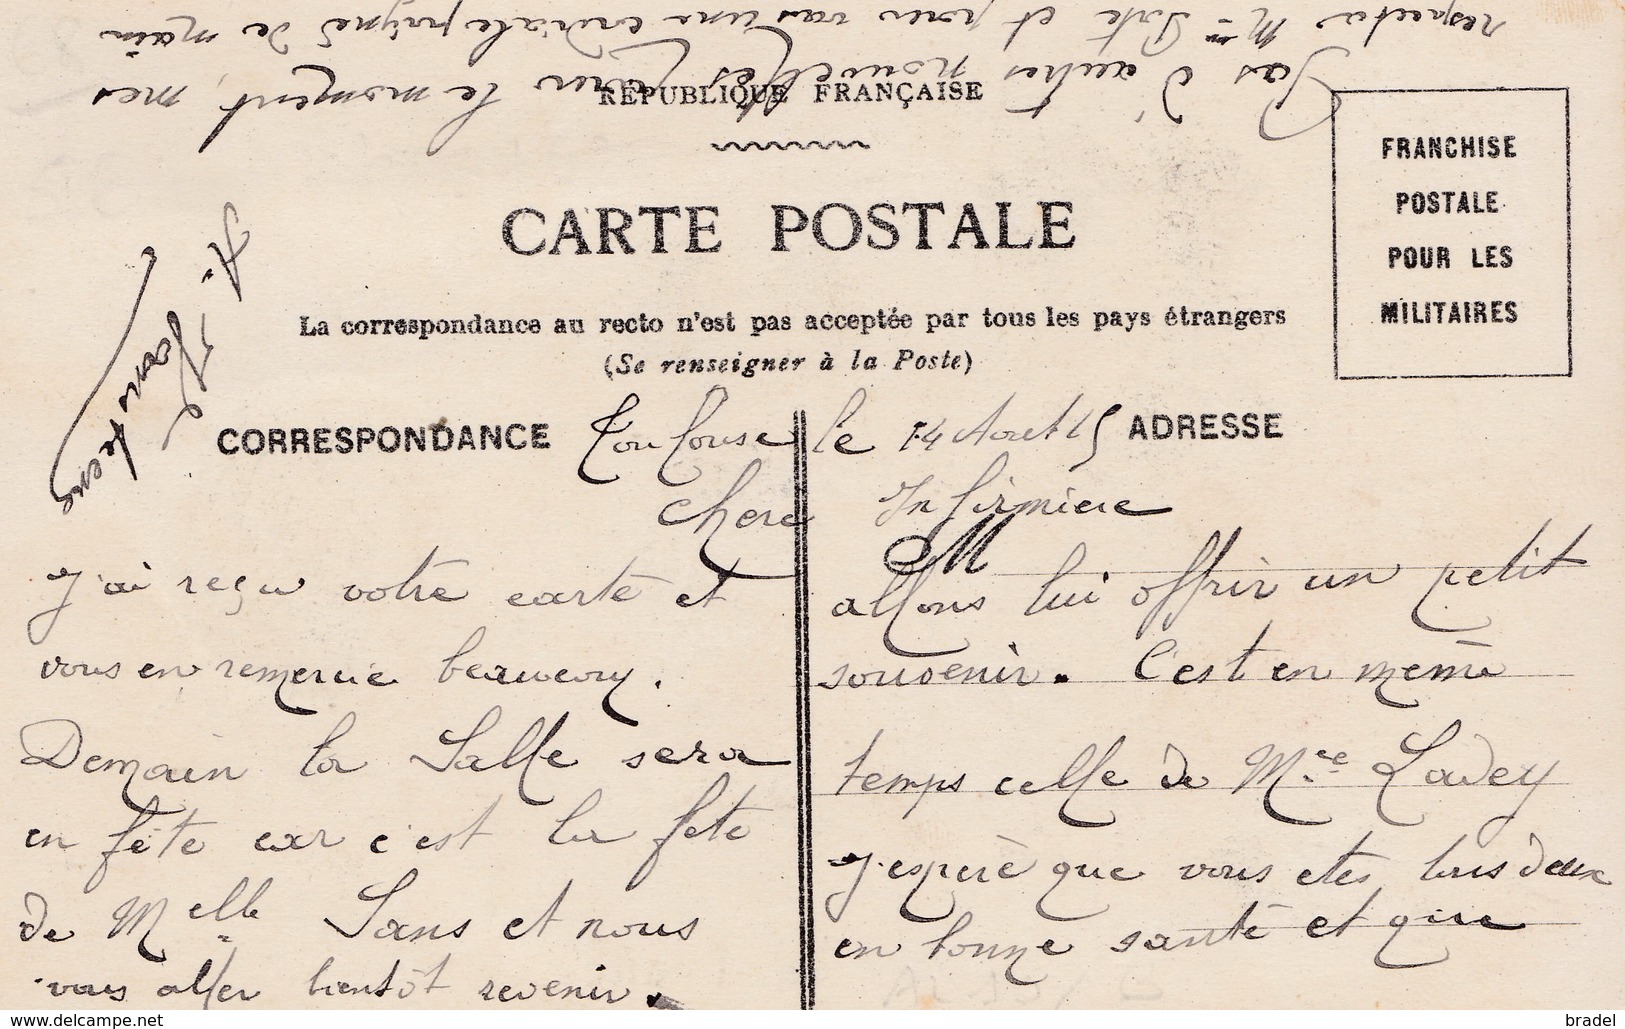 RÉPUBLIQUE FRANÇAISE
CARTE POSTALE
La correspondance au recto n'est pas acceptée par tous les pays étrangers
(Se renseigner à la Poste)
FRANCHISE
POSTALE
POUR LES
MILITAIRES
CORRESPONDANCE
ADRESSE
Toulouse le 14 Aout 15
Chere Infirmiere
J'ai reçu votre carte et
vous en remercie beaucoup.
Demain la Salle sera
en fête car c'est la fete
de Melle Sans et nous
allons lui offrir un petit
souvenir. C'est en même
temps celle de Mme Ladey
J'espere que vous etes tous deux
en bonne santé et que
vous aller bientôt revenir.
Pas d'autres nouvelles pour le moment, mes
respects Mme et pour vous une cordiale poignée de main
bradel
https://www.delcampe.net